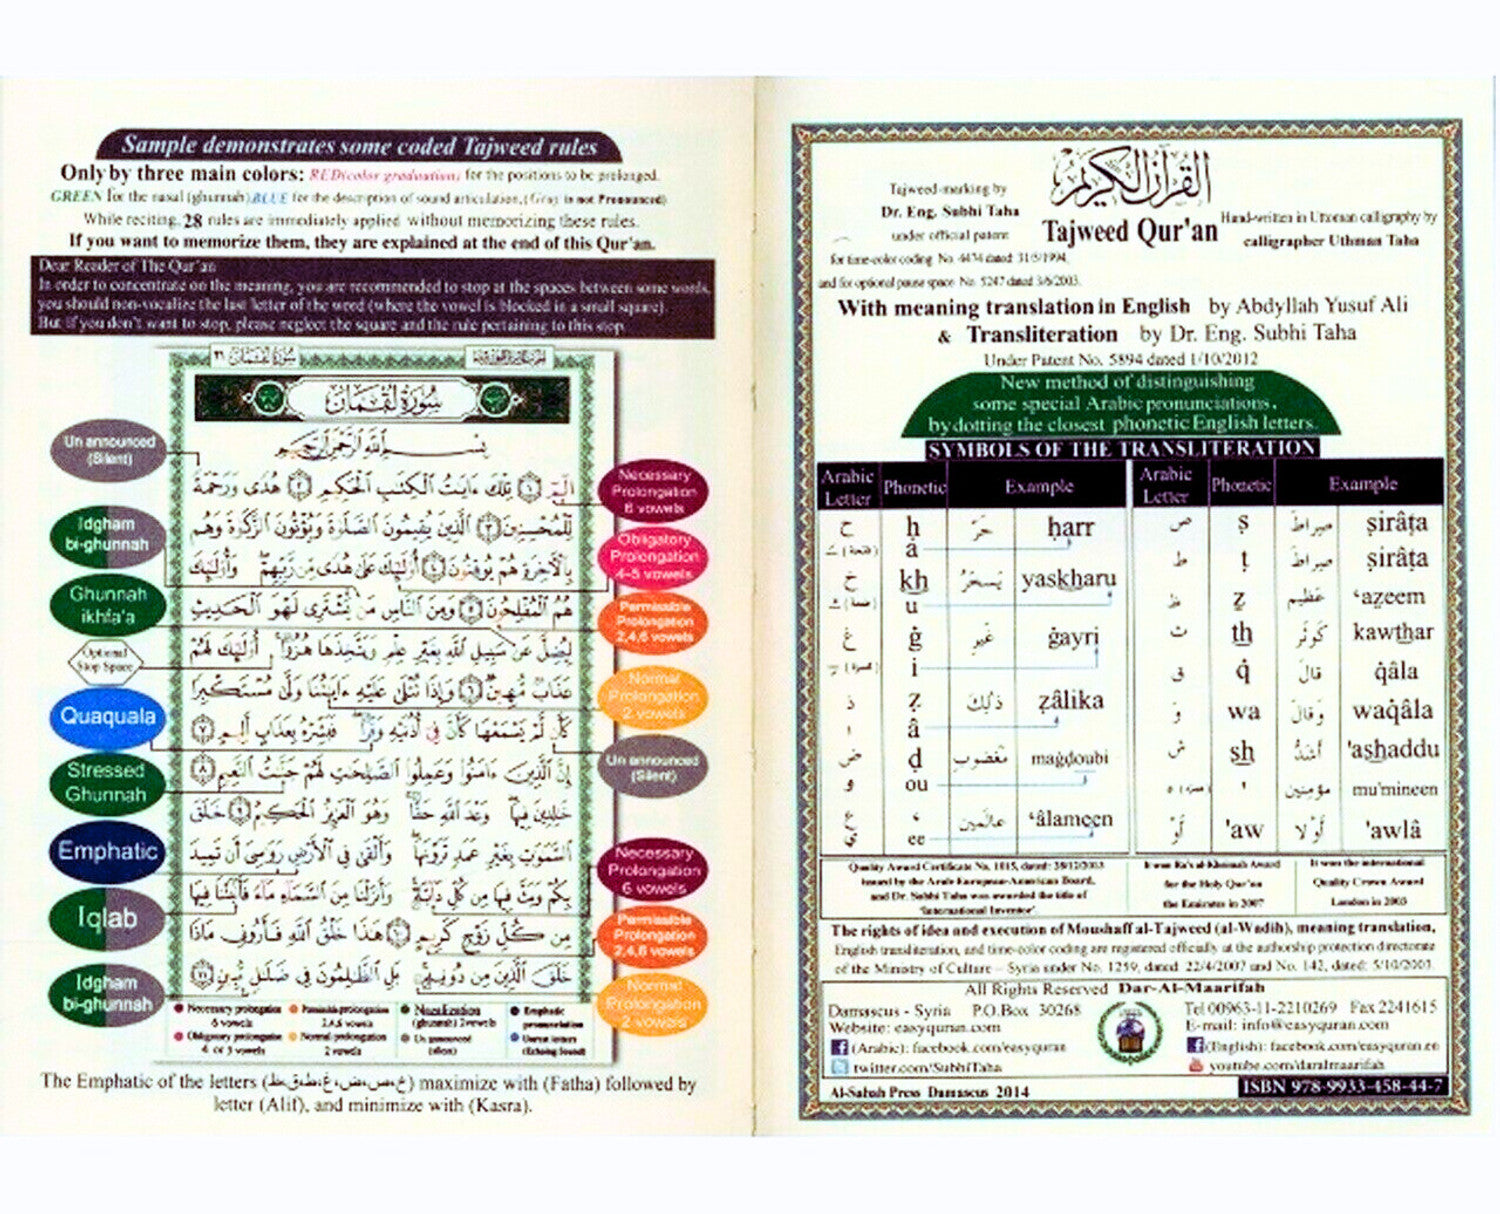 Sample demonstrates some coded Tajweed rules
Only by three main colors: RED(color graduations for the positions to be prolonged.
GREEN for the nasal (ghunnah).BLUE for the description of sound articulation,(Gray is not Pronounced)
While reciting, 28 rules are immediately applied without memorizing these rules.
If you want to memorize them, they are explained at the end of this Qur'an.
Dear Reader of The Qur'an
In order to concentrate on the meaning, you are recommended to stop at the spaces between some words,
you should non-vocalize the last letter of the word (where the vowel is blocked in a small square).
But if you don't want to stop, please neglect the square and the rule pertaining to this stop.
٣١ سُورَةُ لُقْمَان
سُورَةُ لُقْمَان
بِسْمِ اللَّهِ الرَّحْمَٰنِ الرَّحِيمِ
الٓمٓ ١ تِلْكَ ءَايَٰتُ ٱلْكِتَٰبِ ٱلْحَكِيمِ ٢ هُدًى وَرَحْمَةً
لِّلْمُحْسِنِينَ ٣ ٱلَّذِينَ يُقِيمُونَ ٱلصَّلَوٰةَ وَيُؤْتُونَ ٱلزَّكَوٰةَ وَهُم
بِٱلْءَاخِرَةِ هُمْ يُوقِنُونَ ٤ أُو۟لَٰٓئِكَ عَلَىٰ هُدًى مِّن رَّبِّهِمْ وَأُو۟لَٰٓئِكَ
هُمُ ٱلْمُفْلِحُونَ ٥ وَمِنَ ٱلنَّاسِ مَن يَشْتَرِى لَهْوَ ٱلْحَدِيثِ
لِيُضِلَّ عَن سَبِيلِ ٱللَّهِ بِغَيْرِ عِلْمٍ وَيَتَّخِذَهَا هُزُوًا أُو۟لَٰٓئِكَ لَهُمْ
عَذَابٌ مُّهِينٌ ٦ وَإِذَا تُتْلَىٰ عَلَيْهِ ءَايَٰتُنَا وَلَّىٰ مُسْتَكْبِرًا
كَأَن لَّمْ يَسْمَعْهَا كَأَنَّ فِىٓ أُذُنَيْهِ وَقْرًا فَبَشِّرْهُ بِعَذَابٍ أَلِيمٍ ٧
إِنَّ ٱلَّذِينَ ءَامَنُوا۟ وَعَمِلُوا۟ ٱلصَّٰلِحَٰتِ لَهُمْ جَنَّٰتُ ٱلنَّعِيمِ ٨
خَٰلِدِينَ فِيهَا وَعْدَ ٱللَّهِ حَقًّا وَهُوَ ٱلْعَزِيزُ ٱلْحَكِيمُ ٩ خَلَقَ
ٱلسَّمَٰوَٰتِ بِغَيْرِ عَمَدٍ تَرَوْنَهَا وَأَلْقَىٰ فِى ٱلْأَرْضِ رَوَٰسِىَ أَن تَمِيدَ
بِكُمْ وَبَثَّ فِيهَا مِن كُلِّ دَآبَّةٍ وَأَنزَلْنَا مِنَ ٱلسَّمَآءِ مَآءً فَأَنۢبَتْنَا فِيهَا
مِن كُلِّ زَوْجٍ كَرِيمٍ ١٠ هَٰذَا خَلْقُ ٱللَّهِ فَأَرُونِى مَاذَا
خَلَقَ ٱلَّذِينَ مِن دُونِهِۦ بَلِ ٱلظَّٰلِمُونَ فِى ضَلَٰلٍ مُّبِينٍ ١١
Un announced
(Silent)
Idgham
bi-ghunnah
Ghunnah
ikhfa'a
Optional
Stop Space
Quaquala
Stressed
Ghunnah
Emphatic
Iqlab
Idgham
bi-ghunnah
Necessary
Prolongation
6 vowels
Obligatory
Prolongation
4-5 vowels
Permissible
Prolongation
2,4,6 vowels
Normal
Prolongation
2 vowels
Un announced
(Silent)
Necessary
Prolongation
6 vowels
Permissible
Prolongation
2,4,6 vowels
Normal
Prolongation
2 vowels
Necessary prolongation Permissible prolongation Nazalization Emphatic
6 vowels 2,4,6 vowels (ghunnah) 2 vowels pronunciation
Obligatory prolongation Normal prolongation Un announced Unrest letters
4 or 5 vowels 2 vowels (silent) (Echoing Sound)
The Emphatic of the letters (خ،ص،ض،غ،ط،ق،ظ) maximize with (Fatha) followed by
letter (Alif), and minimize with (Kasra).
القرآن الكريم
Tajweed Qur'an
Tajweed-marking by
Dr. Eng. Subhi Taha
under official patent
for time-color coding No. 4474 dated 31/5/1994,
and for optional pause space No. 5247 dated 3/6/2003.
Hand-written in Uttoman calligraphy by
calligrapher Uthman Taha
With meaning translation in English by Abdyllah Yusuf Ali
& Transliteration by Dr. Eng. Subhi Taha
Under Patent No. 5894 dated 1/10/2012
New method of distinguishing
some special Arabic pronunciations,
by dotting the closest phonetic English letters.
SYMBOLS OF THE TRANSLITERATION
Arabic Letter Phonetic Example Arabic Letter Phonetic Example
ح ḥ حَرّ ḥarr ص ṣ صِراطَ ṣirâṭa
(فتحة) a
ط ṭ صِراطَ ṣirâṭa
خ kh يَسخَرُ yaskharu ظ ẓ عَظيم ‘aẓeem
(ضمة) u
ث th كَوثَر kawthar
غ ġ غَيرِ ġayri
(كسرة) i
ق q̇ قالَ q̇âla
ذ ẓ ذلِكَ ẓâlika وَ wa وَقالَ waq̇âla
ا â
ض ḍ مَغضوبِ maġḍoubi ش sh أشَدُّ 'ashaddu
و ou
ء ' مؤمِنين mu'mineen
ع ‘ عالَمين ‘âlameen أوْ 'aw أوْلا 'awlâ
ي ee
Quality Award Certificate No. 1015, dated: 28/12/2013
issued by the Arab European-American Board,
and Dr. Subhi Taha was awarded the title of
'International Inventor'.
It won Ra's al-Khaimah Award
for the Holy Qur'an
the Emirates in 2007
It won the international
Quality Crown Award
London in 2003
The rights of idea and execution of Moushaff al-Tajweed (al-Wadih), meaning translation,
English transliteration, and time-color coding are registered officially at the authorship protection directorate
of the Ministry of Culture – Syria under No. 1259, dated: 22/4/2007 and No. 142, dated: 5/10/2003.
All Rights Reserved Dar-Al-Maarifah
Damascus - Syria P.O.Box 30268
Website: easyquran.com
(Arabic): facebook.com/easyquran
twitter.com/SubhiTaha
Tel 00963-11-2210269 Fax 2241615
E-mail: info@easyquran.com
(English): facebook.com/easyquran.en
youtube.com/daralmaarifah
Al-Sabah Press Damascus 2014
ISBN 978-9933-458-44-7